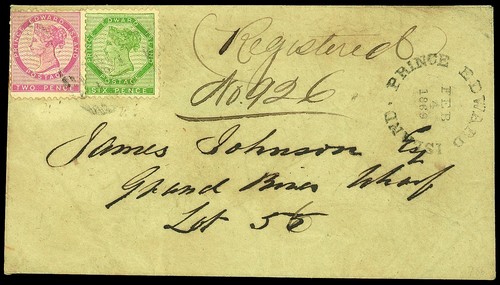 PRINCE EDWARD ISLAND
POSTAGE
TWO PENCE
PRINCE EDWARD ISLAND
POSTAGE
SIX PENCE
Registered
No. 926
PRINCE EDWARD ISLAND
FEB
4
1869
James Johnson Esq
Grand River Wharf
Lot 56